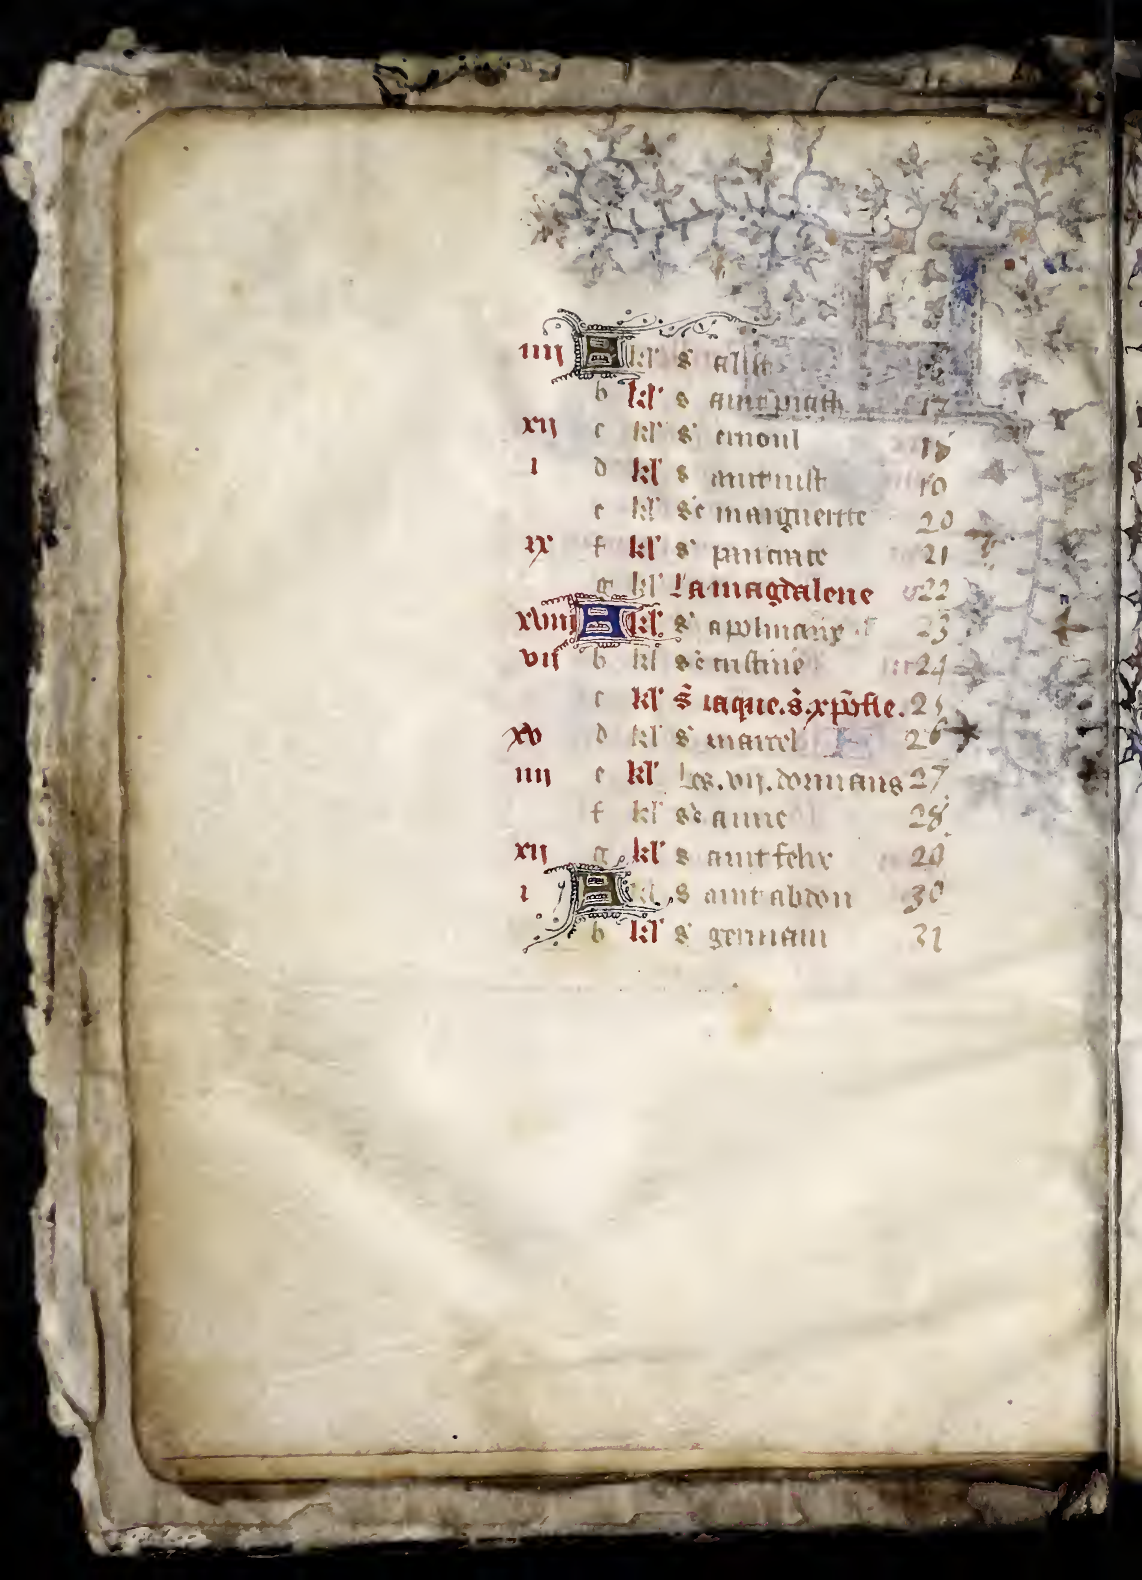 iiij A kl' s'
b kl' s aint piath 17
xij c kl' s' ernoul 18
i d kl' s aint iust 19
e kl' s'e marguerite 20
ix f kl' s' 21
g kl' La magdalene 22
xviij A kl' s' 23
vij b kl' s'e cristine 24
c kl' s' iaque. s'. xp̄ofle. 25
xv d kl' s' marcel 26
iiij e kl' Les .vij. dormans 27
f kl' s'e anne 28
xij g kl' s aint felix 29
i A kl' s aint abdon 30
b kl' s' germain 31